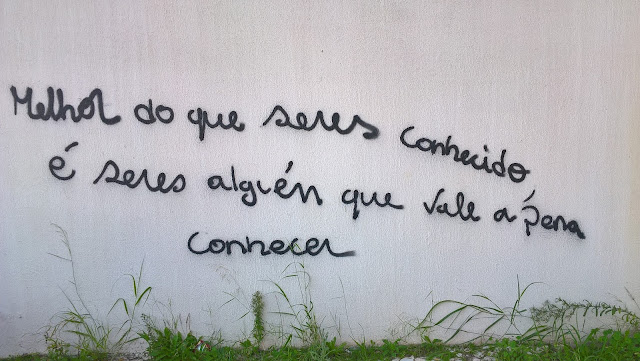 Melhor do que seres conhecido,
é seres alguén que vale a pena
conhecer